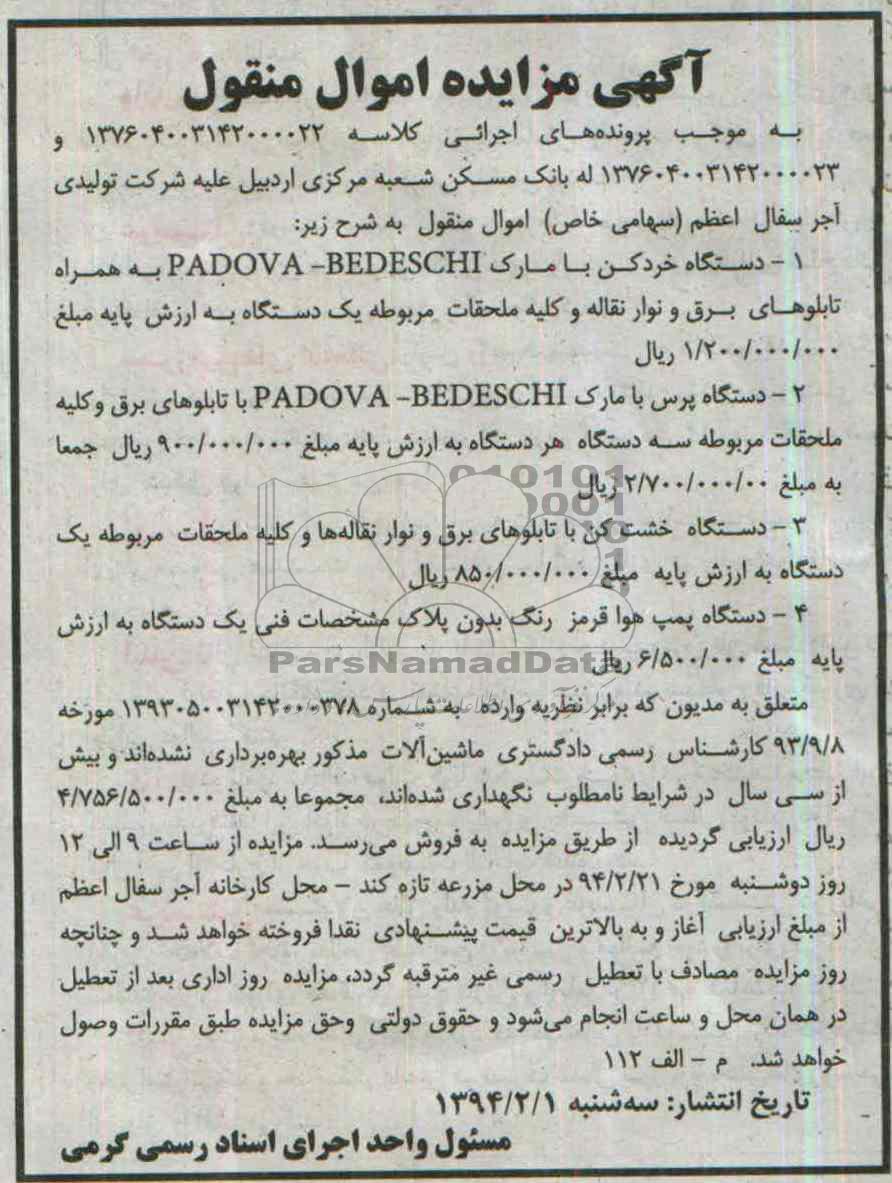 آگهی مزایده اموال منقول
به موجب پرونده‌های اجرائی کلاسه ۱۳۷۶۰۴۰۰۳۱۴۲۰۰۰۰۲۲ و
۱۳۷۶۰۴۰۰۳۱۴۲۰۰۰۰۲۳ له بانک مسکن شعبه مرکزی اردبیل علیه شرکت تولیدی
آجر سفال اعظم (سهامی خاص) اموال منقول به شرح زیر:
۱ - دستگاه خردکن با مارک PADOVA -BEDESCHI به همراه
تابلوهای برق و نوار نقاله و کلیه ملحقات مربوطه یک دستگاه به ارزش پایه مبلغ
۱/۲۰۰/۰۰۰/۰۰۰ ریال
۲ - دستگاه پرس با مارک PADOVA -BEDESCHI با تابلوهای برق وکلیه
ملحقات مربوطه سه دستگاه هر دستگاه به ارزش پایه مبلغ ۹۰۰/۰۰۰/۰۰۰ ریال جمعا
به مبلغ ۲/۷۰۰/۰۰۰/۰۰ ریال
۳ - دستگاه خشت کن با تابلوهای برق و نوار نقاله‌ها و کلیه ملحقات مربوطه یک
دستگاه به ارزش پایه مبلغ ۸۵۰/۰۰۰/۰۰۰ ریال
۴ - دستگاه پمپ هوا قرمز رنگ بدون پلاک مشخصات فنی یک دستگاه به ارزش
پایه مبلغ ۶/۵۰۰/۰۰۰ ریال
ParsNamadData
متعلق به مدیون که برابر نظریه وارده به شماره ۱۳۹۳۰۵۰۰۳۱۴۲۰۰۰۳۷۸ مورخه
۹۳/۹/۸ کارشناس رسمی دادگستری ماشین‌آلات مذکور بهره‌برداری نشده‌اند و بیش
از سی سال در شرایط نامطلوب نگهداری شده‌اند، مجموعا به مبلغ ۴/۷۵۶/۵۰۰/۰۰۰
ریال ارزیابی گردیده از طریق مزایده به فروش می‌رسد. مزایده از ساعت ۹ الی ۱۲
روز دوشنبه مورخ ۹۴/۲/۲۱ در محل مزرعه تازه کند - محل کارخانه آجر سفال اعظم
از مبلغ ارزیابی آغاز و به بالاترین قیمت پیشنهادی نقدا فروخته خواهد شد و چنانچه
روز مزایده مصادف با تعطیل رسمی غیر مترقبه گردد، مزایده روز اداری بعد از تعطیل
در همان محل و ساعت انجام می‌شود و حقوق دولتی وحق مزایده طبق مقررات وصول
خواهد شد. م - الف ۱۱۲
تاریخ انتشار: سه‌شنبه ۱۳۹۴/۲/۱
مسئول واحد اجرای اسناد رسمی گرمی